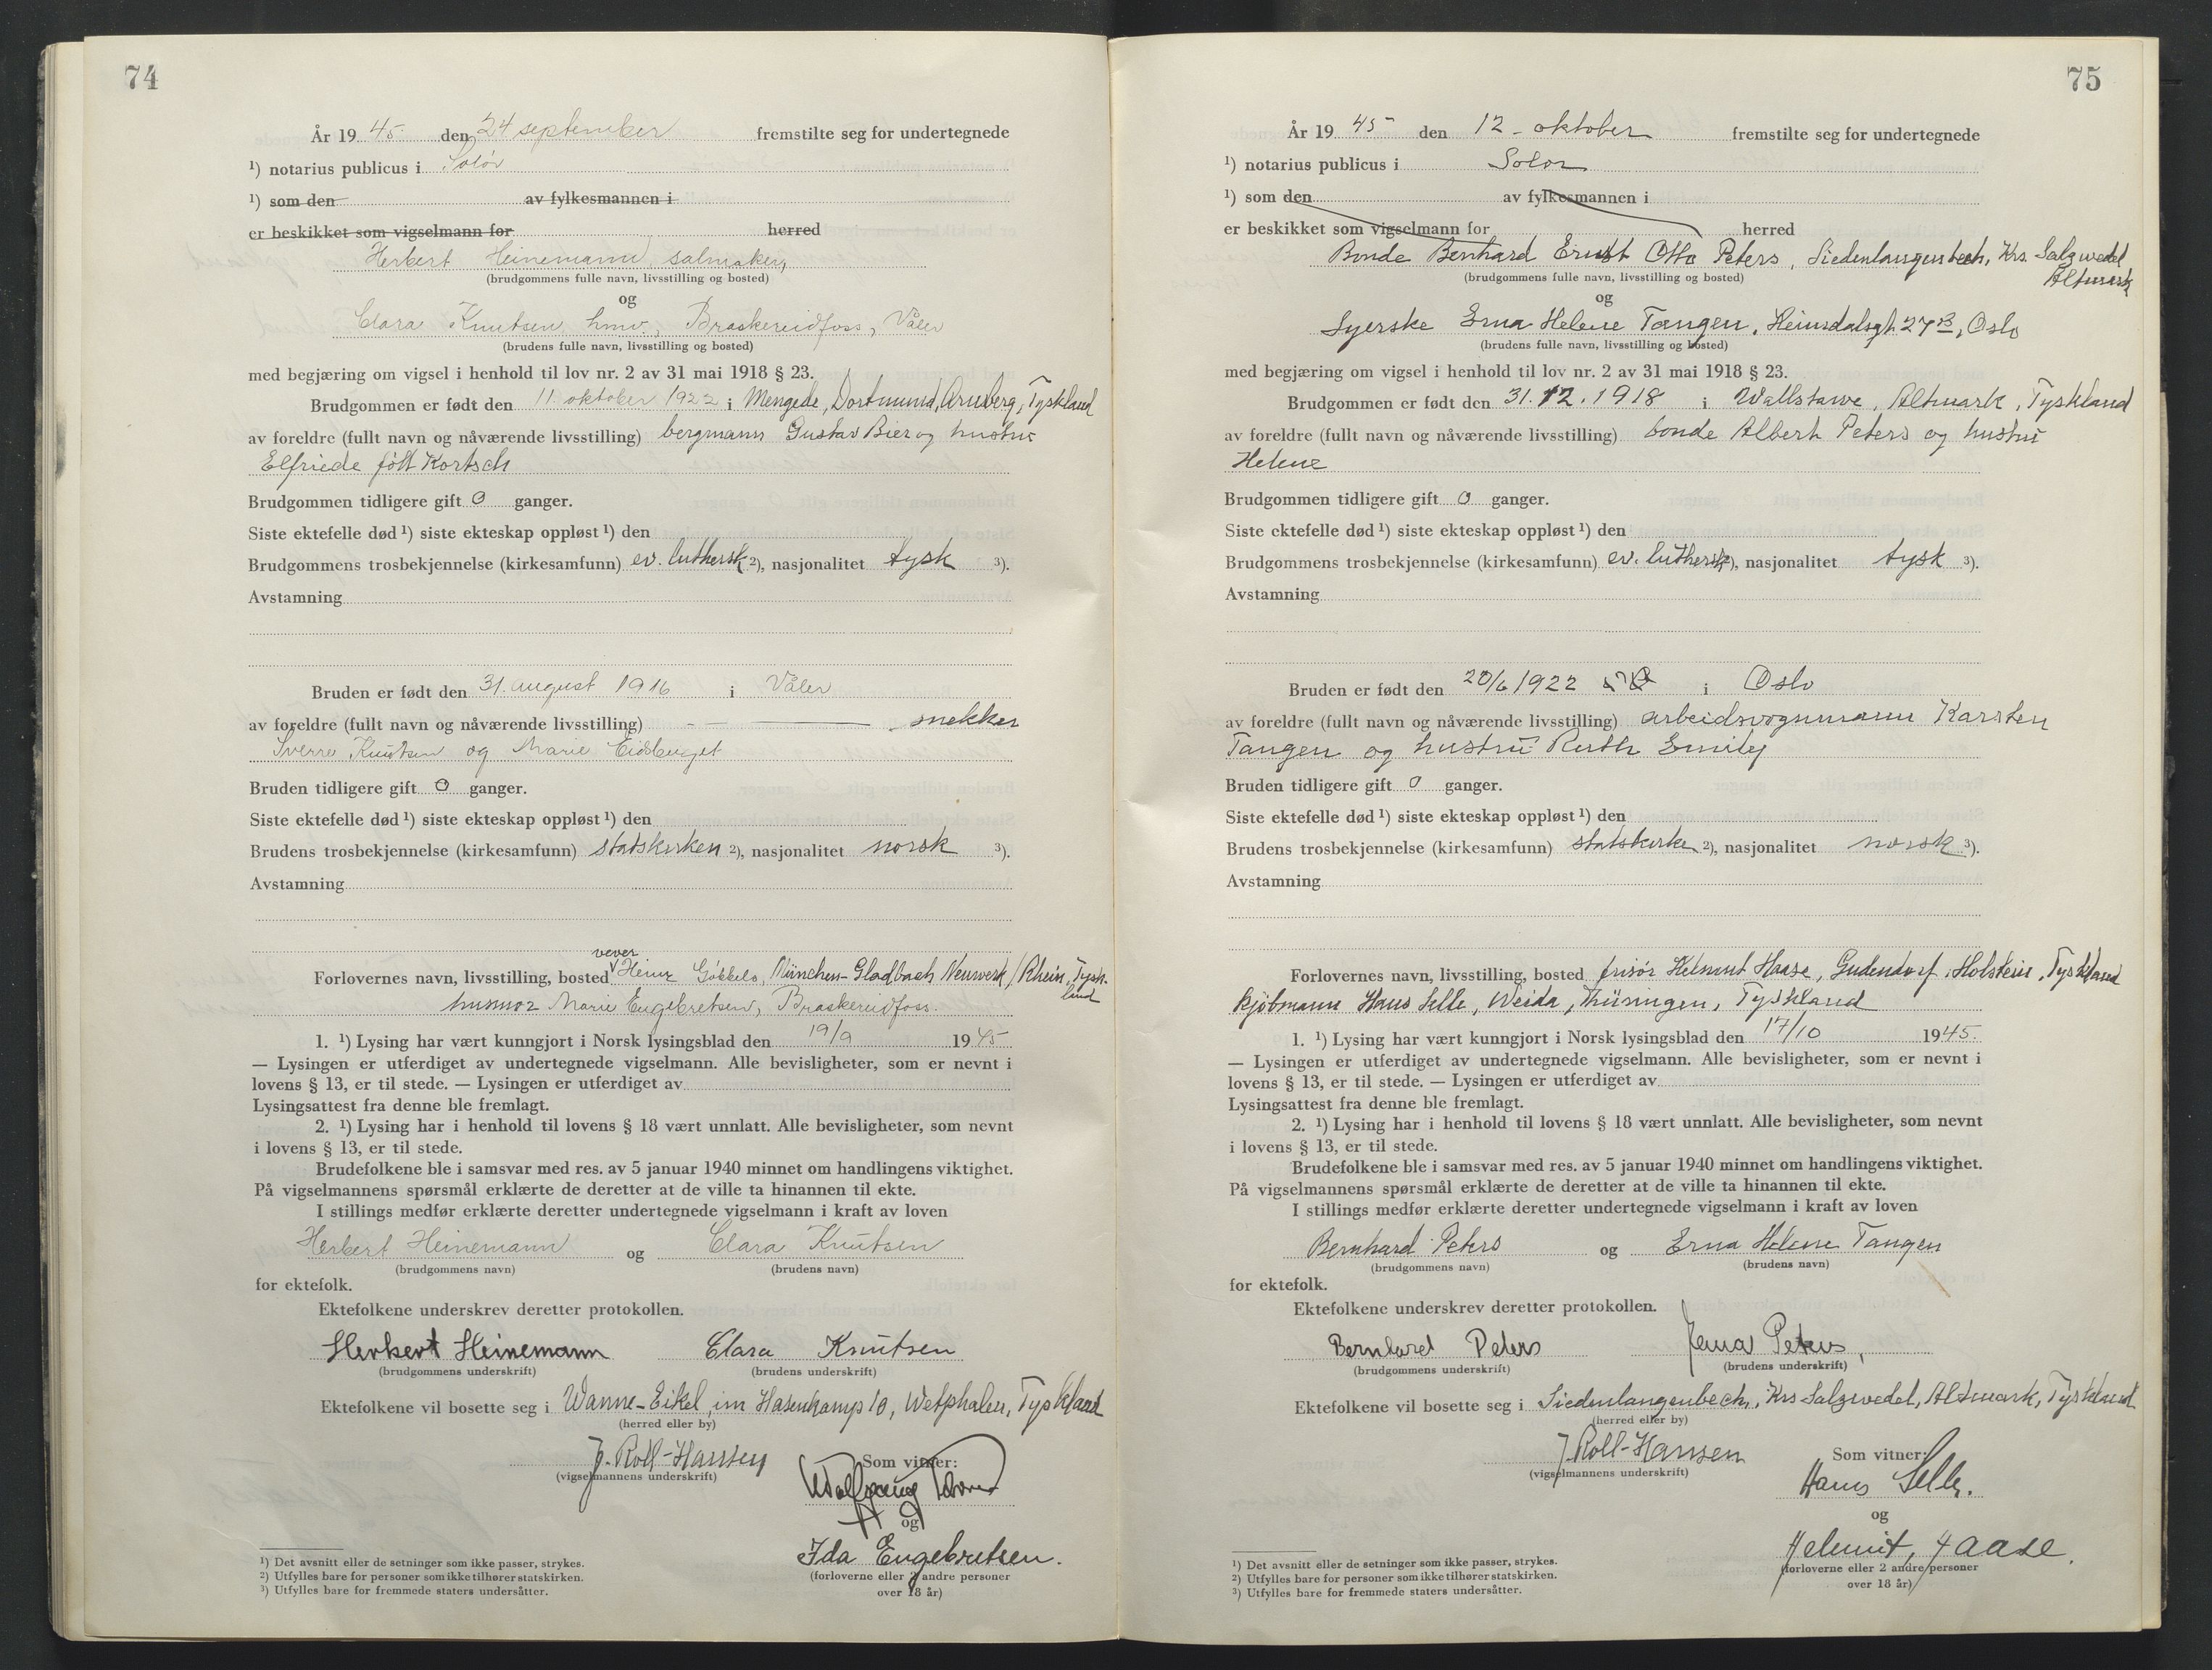 74
År 19 45 den 24 september fremstilte seg for undertegnede
¹) notarius publicus i Solør
¹) som den av fylkesmannen i
er beskikket som vigselmann for herred
Herbert Heinemann, salmaker,
(brudgommens fulle navn, livsstilling og bosted)
og
Clara Knutsen, hmv., Braskereidfoss, Våler
(brudens fulle navn, livsstilling og bosted)
med begjæring om vigsel i henhold til lov nr. 2 av 31 mai 1918 § 23.
Brudgommen er født den 11. oktober 1922 i Mengede, Dortmund, Arnsberg, Tyskland
av foreldre (fullt navn og nåværende livsstilling) bergmann Gustav Bier og hustru
Elfriede født Kortsch
Brudgommen tidligere gift 0 ganger.
Siste ektefelle død ¹) siste ekteskap oppløst ¹) den
Brudgommens trosbekjennelse (kirkesamfunn) ev. luthersk ²), nasjonalitet tysk ³).
Avstamning
Bruden er født den 31. august 1916 i Våler
av foreldre (fullt navn og nåværende livsstilling) snekker
Sverre Knutsen og Marie Eidsberget
Bruden tidligere gift 0 ganger.
Siste ektefelle død ¹) siste ekteskap oppløst ¹) den
Brudens trosbekjennelse (kirkesamfunn) statskirken ²), nasjonalitet norsk ³).
Avstamning
vever
Forlovernes navn, livsstilling, bosted Heinz Gökkels, München-Gladbach Neuwerk/Rhein, Tysk-
land
husmor Marie Engebretsen, Braskereidfoss.
1. ¹) Lysing har vært kunngjort i Norsk lysingsblad den 19/9 1945
— Lysingen er utferdiget av undertegnede vigselmann. Alle bevisligheter, som er nevnt i
lovens § 13, er til stede. — Lysingen er utferdiget av
Lysingsattest fra denne ble fremlagt.
2. ¹) Lysing har i henhold til lovens § 18 vært unnlatt. Alle bevisligheter, som nevnt
i lovens § 13, er til stede.
Brudefolkene ble i samsvar med res. av 5 januar 1940 minnet om handlingens viktighet.
På vigselmannens spørsmål erklærte de deretter at de ville ta hinannen til ekte.
I stillings medfør erklærte deretter undertegnede vigselmann i kraft av loven
Herbert Heinemann og Clara Knutsen
(brudgommens navn) (brudens navn)
for ektefolk.
Ektefolkene underskrev deretter protokollen.
Herbert Heinemann Clara Knutsen
(brudgommens underskrift) (brudens underskrift)
Ektefolkene vil bosette seg i Wanne-Eikel, im Hasenkamp 10, Wetphalen, Tyskland
(herred eller by)
J. Roll-Hansen Som vitner:
(vigselmannens underskrift) Wolfgang
og
Ida Engebretsen.
(forloverne eller 2 andre personer
over 18 år)
¹) Det avsnitt eller de setninger som ikke passer, strykes.
²) Utfylles bare for personer som ikke tilhører statskirken.
³) Utfylles bare for fremmede staters undersåtter.
75
År 19 45 den 12 - oktober fremstilte seg for undertegnede
¹) notarius publicus i Solør
¹) som den av fylkesmannen i
er beskikket som vigselmann for herred
Bonde Bernhard Ernst Otto Peters, Siedenlangenbeck, Krs. Salzwedel
Altmark
(brudgommens fulle navn, livsstilling og bosted)
og
Syerske Erna Helene Tangen, Heimdalsgt. 27 B, Oslo
(brudens fulle navn, livsstilling og bosted)
med begjæring om vigsel i henhold til lov nr. 2 av 31 mai 1918 § 23.
Brudgommen er født den 31.12.1918 i Wallstawe, Altmark, Tyskland
av foreldre (fullt navn og nåværende livsstilling) bonde Albert Peters og hustru
Helene
Brudgommen tidligere gift 0 ganger.
Siste ektefelle død ¹) siste ekteskap oppløst ¹) den
Brudgommens trosbekjennelse (kirkesamfunn) ev. luthersk ²), nasjonalitet tysk ³).
Avstamning
Bruden er født den 20/6 1922 i Oslo
av foreldre (fullt navn og nåværende livsstilling) arbeidsvognmann Karsten
Tangen og hustru Ruth Emily
Bruden tidligere gift 0 ganger.
Siste ektefelle død ¹) siste ekteskap oppløst ¹) den
Brudens trosbekjennelse (kirkesamfunn) statskirke ²), nasjonalitet norsk ³).
Avstamning
Forlovernes navn, livsstilling, bosted frisør Helmut Haase, Gudendorf, Holstein, Tyskland
kjøbmann Hans Selle, Weida, Thüringen, Tyskland
1. ¹) Lysing har vært kunngjort i Norsk lysingsblad den 17/10 1945.
— Lysingen er utferdiget av undertegnede vigselmann. Alle bevisligheter, som er nevnt i
lovens § 13, er til stede. — Lysingen er utferdiget av
Lysingsattest fra denne ble fremlagt.
2. ¹) Lysing har i henhold til lovens § 18 vært unnlatt. Alle bevisligheter, som nevnt
i lovens § 13, er til stede.
Brudefolkene ble i samsvar med res. av 5 januar 1940 minnet om handlingens viktighet.
På vigselmannens spørsmål erklærte de deretter at de ville ta hinannen til ekte.
I stillings medfør erklærte deretter undertegnede vigselmann i kraft av loven
Bernhard Peters og Erna Helene Tangen
(brudgommens navn) (brudens navn)
for ektefolk.
Ektefolkene underskrev deretter protokollen.
Bernhard Peters Erna Peters,
(brudgommens underskrift) (brudens underskrift)
Ektefolkene vil bosette seg i Siedenlangenbeck, Krs Salzwedel, Altmark, Tyskland
(herred eller by)
J. Roll-Hansen Som vitner:
(vigselmannens underskrift) Hans Selle.
og
Helmut, Haase.
(forloverne eller 2 andre personer
over 18 år)
¹) Det avsnitt eller de setninger som ikke passer, strykes.
²) Utfylles bare for personer som ikke tilhører statskirken.
³) Utfylles bare for fremmede staters undersåtter.